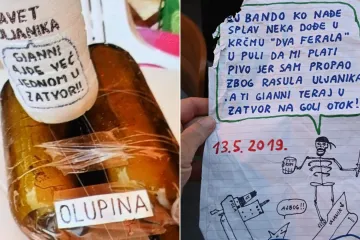 AVET
ULJANIKA
GIANNI
AJDE VEĆ
JEDNOM U
ZATVOR!!
OLUPINA
U BANDO KO NAĐE
SPLAV NEKA DOĐE U
KRČMU "DVA FERALA"
U PULI DA MI PLATI
PIVO JER SAM PROPAO
ZBOG RASULA ULJANIKA
A TI GIANNI TERAJ U
ZATVOR NA GOLI OTOK!
13.5.2019.
AJBOG!!